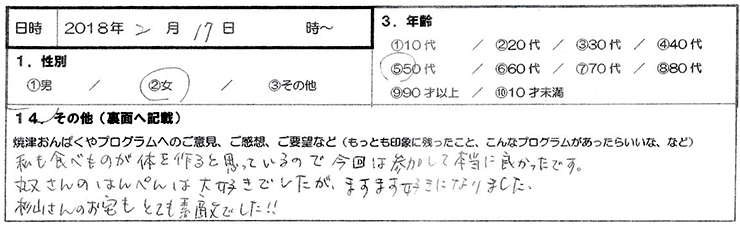 日時 2018年 2 月 17日 時～
1．性別
①男 ／ ②女 ／ ③その他
3．年齢
①10代 ／ ②20代 ／ ③30代 ／ ④40代
⑤50代 ／ ⑥60代 ／ ⑦70代 ／ ⑧80代
⑨90才以上 ／ ⑩10才未満
14．その他（裏面へ記載）
焼津おんぱくやプログラムへのご意見、ご感想、ご要望など（もっとも印象に残ったこと、こんなプログラムがあったらいいな、など）
私も食べものが体を作ると思っているので今回は参加して本当に良かったです。
奴さんのはんぺんは大好きでしたが、ますます好きになりました、
杉山さんのお宅もとても素敵でした!!